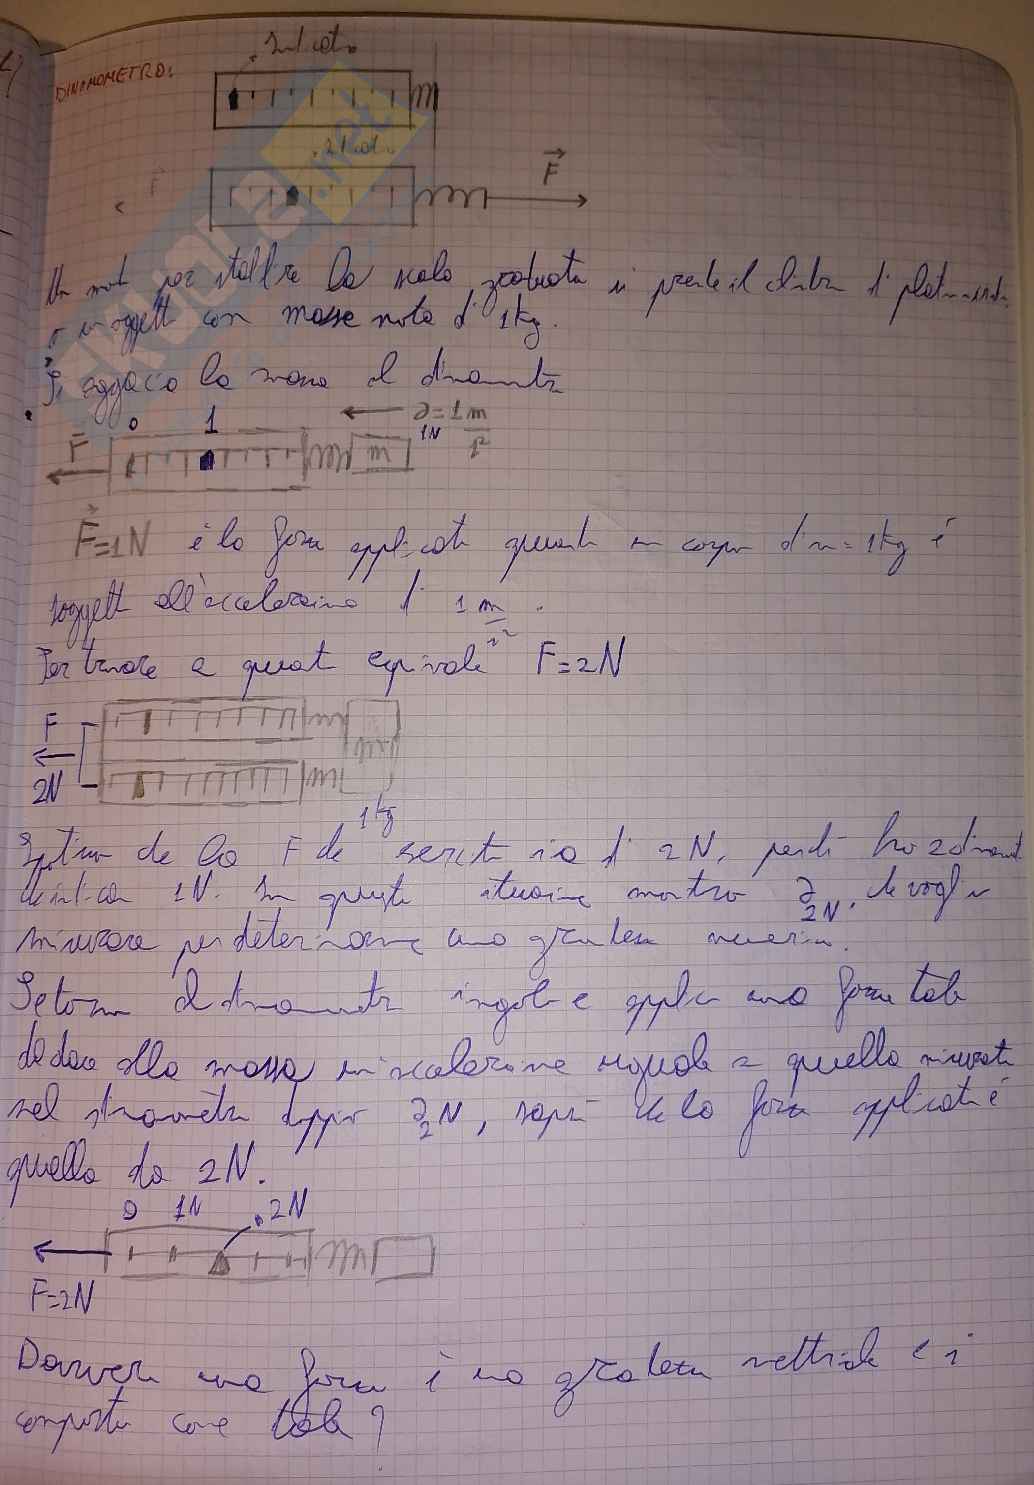 DINAMOMETRO:
Indicat.
.net
F
F
la scala graduata si prende il cilindro di platino-iridio
o un oggetto con massa nota di 1kg.
Si aggancia la massa al dinamometro
0 1 a=1 m
1N s²
F m
F=1N è la forza applicata quando un corpo di m=1kg è
soggetto all'accelerazione di 1 m
s²
Per trovare a quanto equivale F=2N
F
2N
m
1kg
che la F che esercito è di 2N, perché ho 2 dinamometri
che indicano 1N. In questa situazione a2N, che voglio
misurare per determinare una grandezza
Se torno al dinamometro singolo e applico una forza tale
da dare alla massa un'accelerazione uguale a quella misurata
nel dinamometro doppio a2N, saprò che la forza applicata è
quella da 2N.
0 1N 2N
F=2N
Davvero una forza è una grandezza vettoriale e si
comporta come tale?